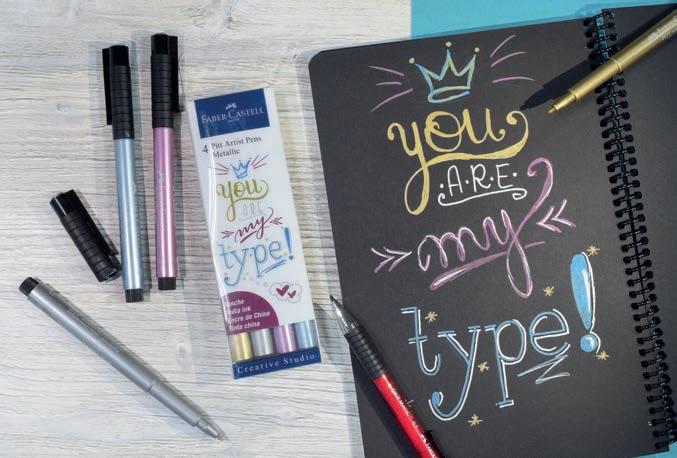 FABER-CASTELL
4 Pitt Artist Pens
Metallic
you
ARE
my
type!
Tusche
India ink
Encre de Chine
Tinta china
Creative Studio
you
·A·R·E·
my
type!